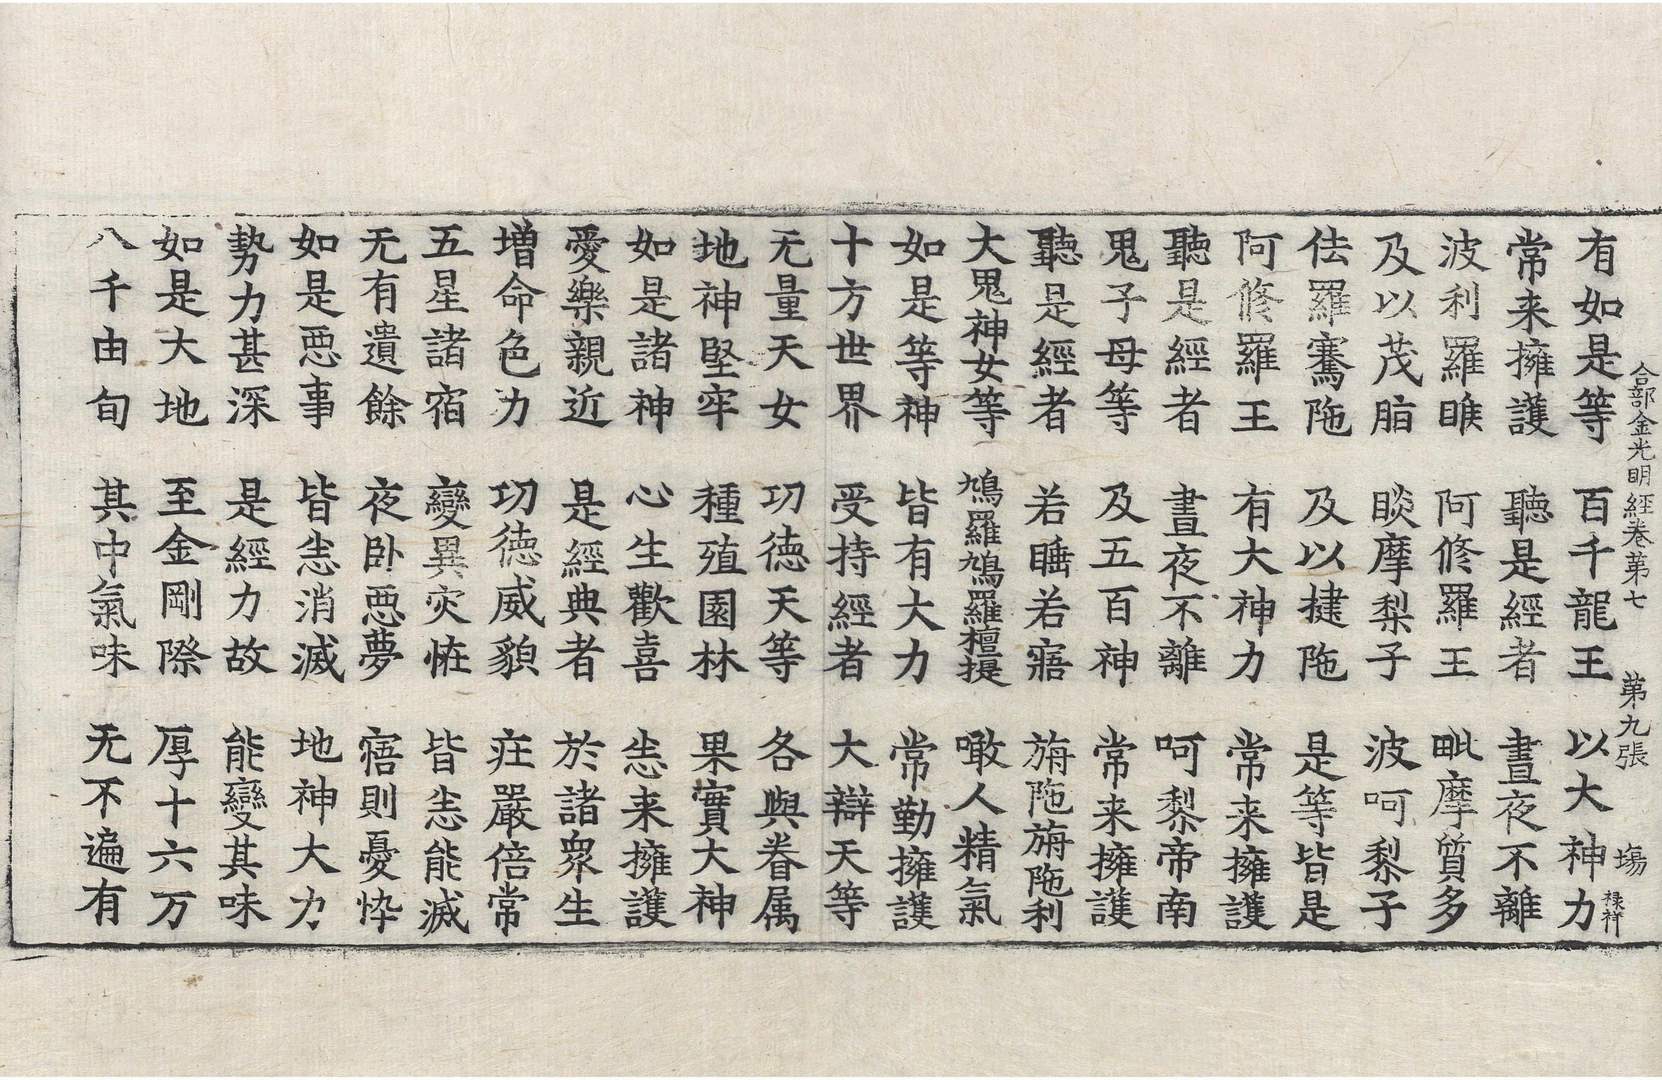 合部金光明經卷第七 第九張 塲 祿祥
有如是等 百千龍王 以大神力
常来擁護 聽是經者 晝夜不離
波利羅睺 阿修羅王 毗摩質多
及以茂脂 睒摩梨子 波呵梨子
佉羅騫陁 及以揵陁 是等皆是
阿修羅王 有大神力 常来擁護
聽是經者 晝夜不離 呵梨帝南
鬼子母等 及五百神 常来擁護
聽是經者 若睡若寤 旃陁旃陁利
大鬼神女等 鳩羅鳩羅檀提 噉人精氣
如是等神 皆有大力 常勤擁護
十方世界 受持經者 大辯天等
无量天女 功德天等 各與眷属
地神堅牢 種殖園林 果實大神
如是諸神 心生歡喜 悉来擁護
愛樂親近 是經典者 於諸衆生
增命色力 功德威貌 莊嚴倍常
五星諸宿 變異灾恠 皆悉能滅
无有遺餘 夜卧惡夢 寤則憂悴
如是惡事 皆悉消滅 地神大力
勢力甚深 是經力故 能變其味
如是大地 至金剛際 厚十六万
八千由旬 其中氣味 无不遍有